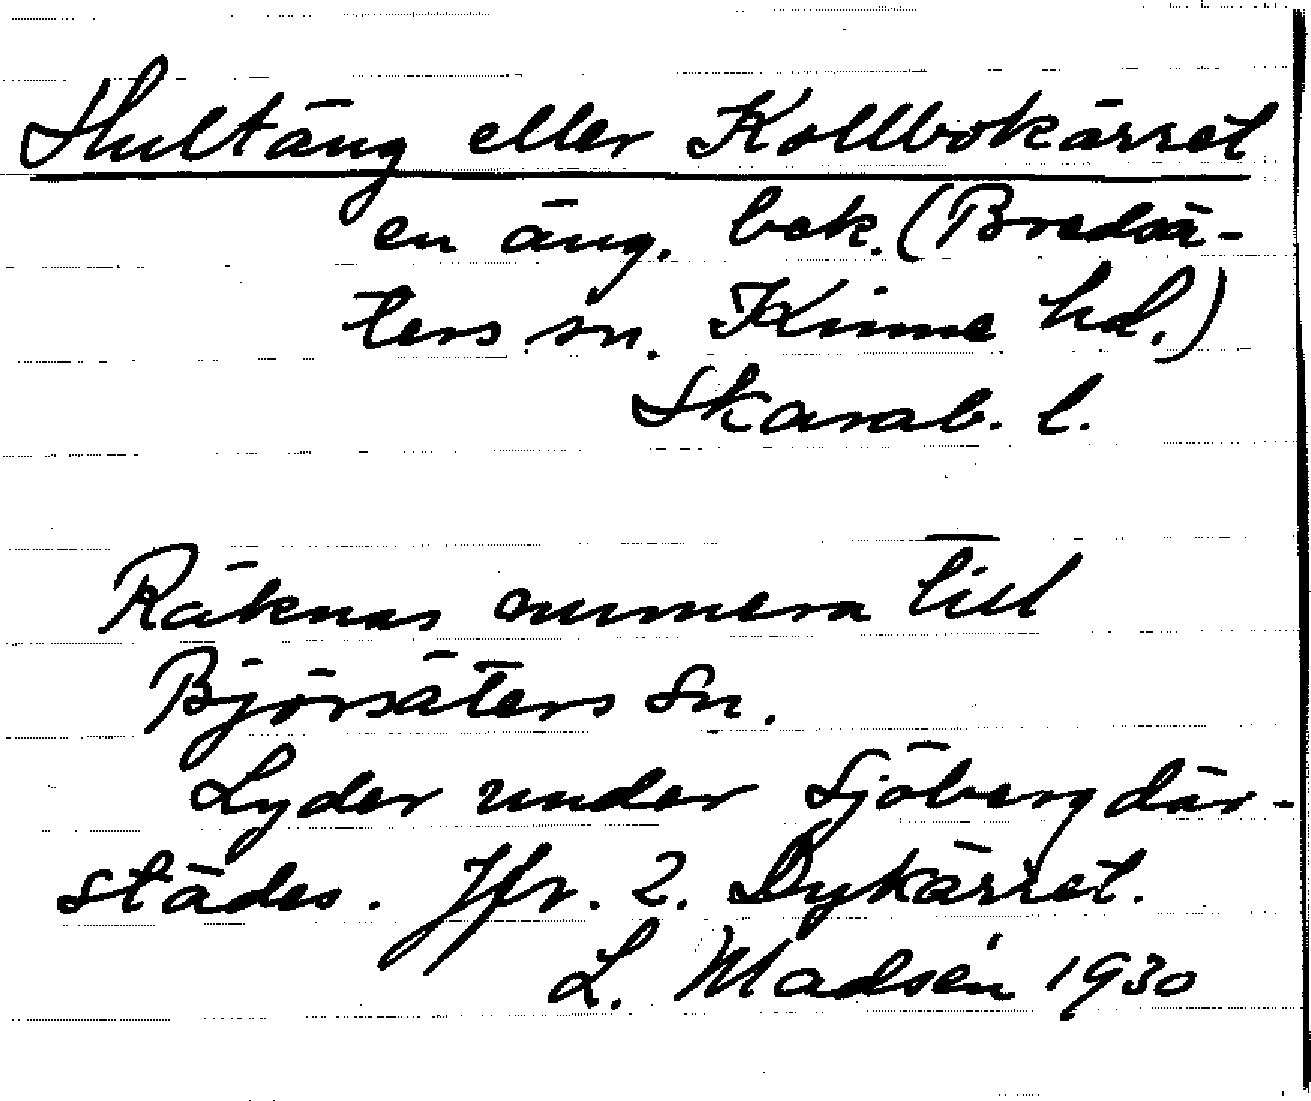 Hultäng eller Kollbokärret
en äng. bek. (Bredsä-
ters sn. Kinne hd.)
Skarab. l.
Räknas numera till
Björsäters sn.
Lyder under Sjöberg där-
städes. Jfr. 2. Dykärret.
L. Madsén 1930